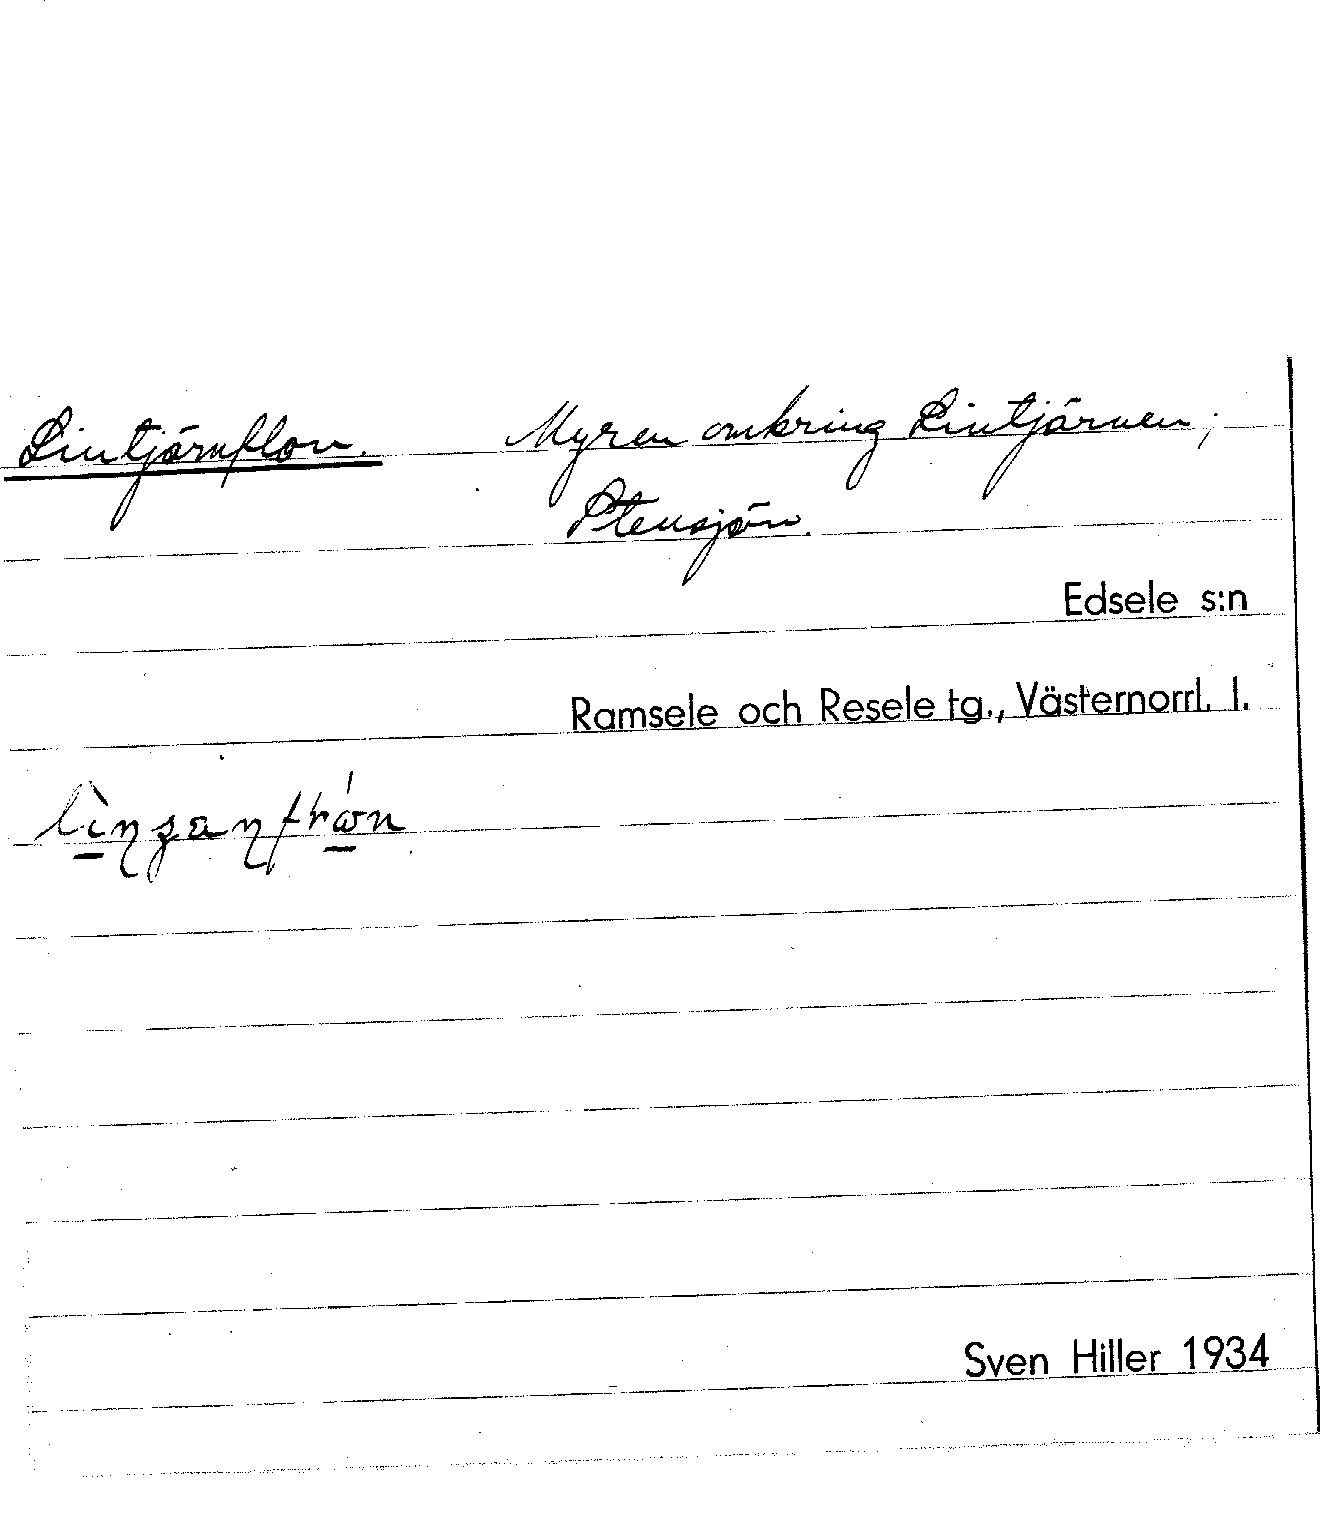 Lintjärnflon. Myren omkring Lintjärnen;
Stensjön.
Edsele s:n
Ramsele och Resele tg., Västernorrl. l.
Sven Hiller 1934